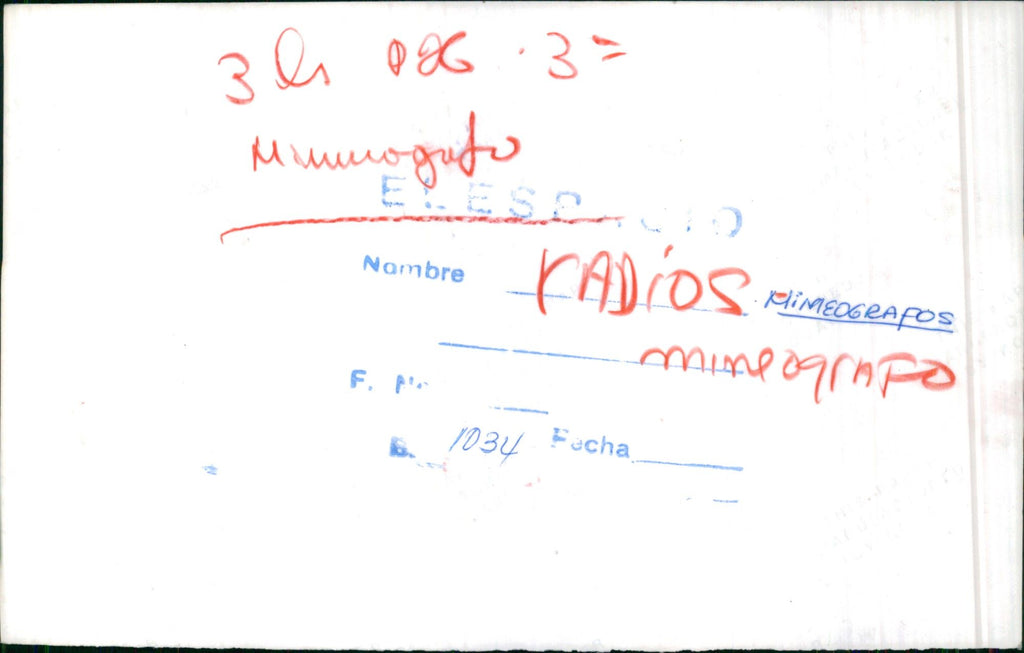 3
Mimeografo
EL ESPACIO
Nombre RADIOS MIMEOGRAFOS
mimeografo
F. No.
B. 1034 Fecha